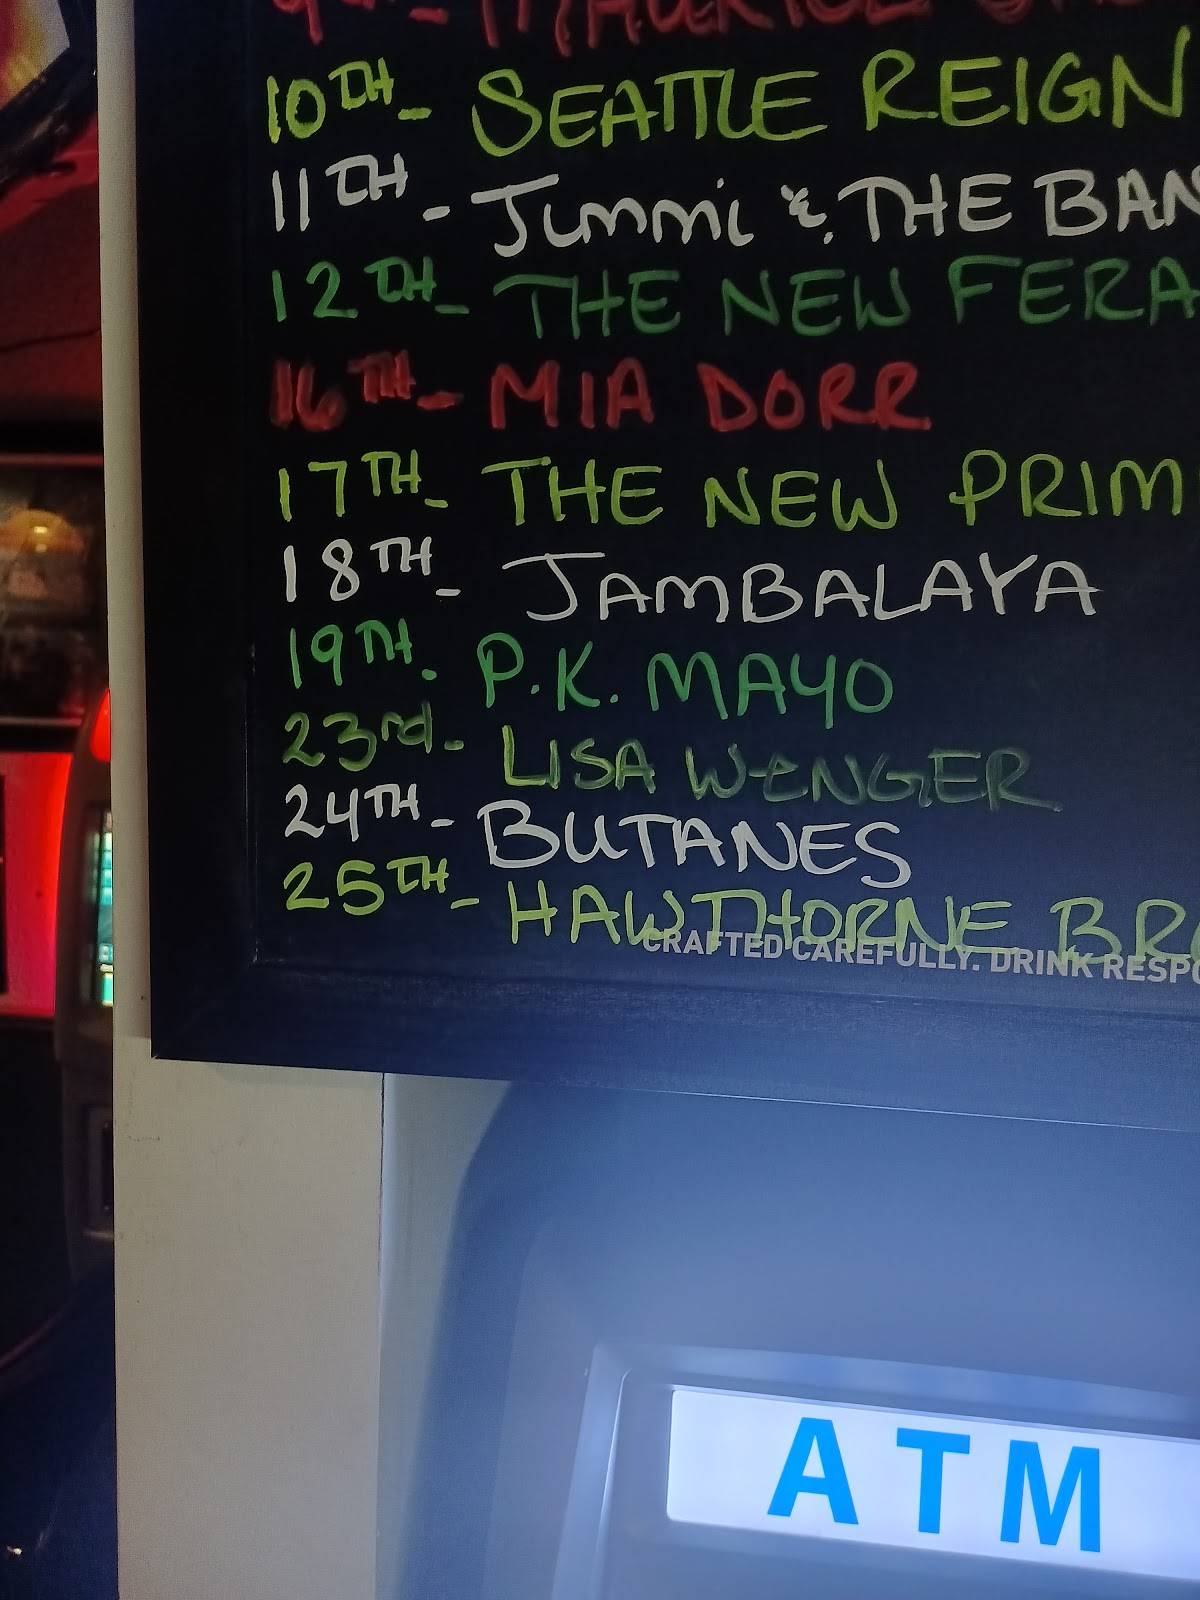 10TH - SEATTLE REIGN
11TH - Jimmi & THE BAN
12TH - THE NEW FERA
16TH - MIA DORR
17TH - THE NEW PRIM
18TH - JAMBALAYA
19TH. P.K. MAYO
23rd - LISA WENGER
24TH - BUTANES
25TH - HAWTHORNE BR
CRAFTED CAREFULLY. DRINK RESPO
ATM